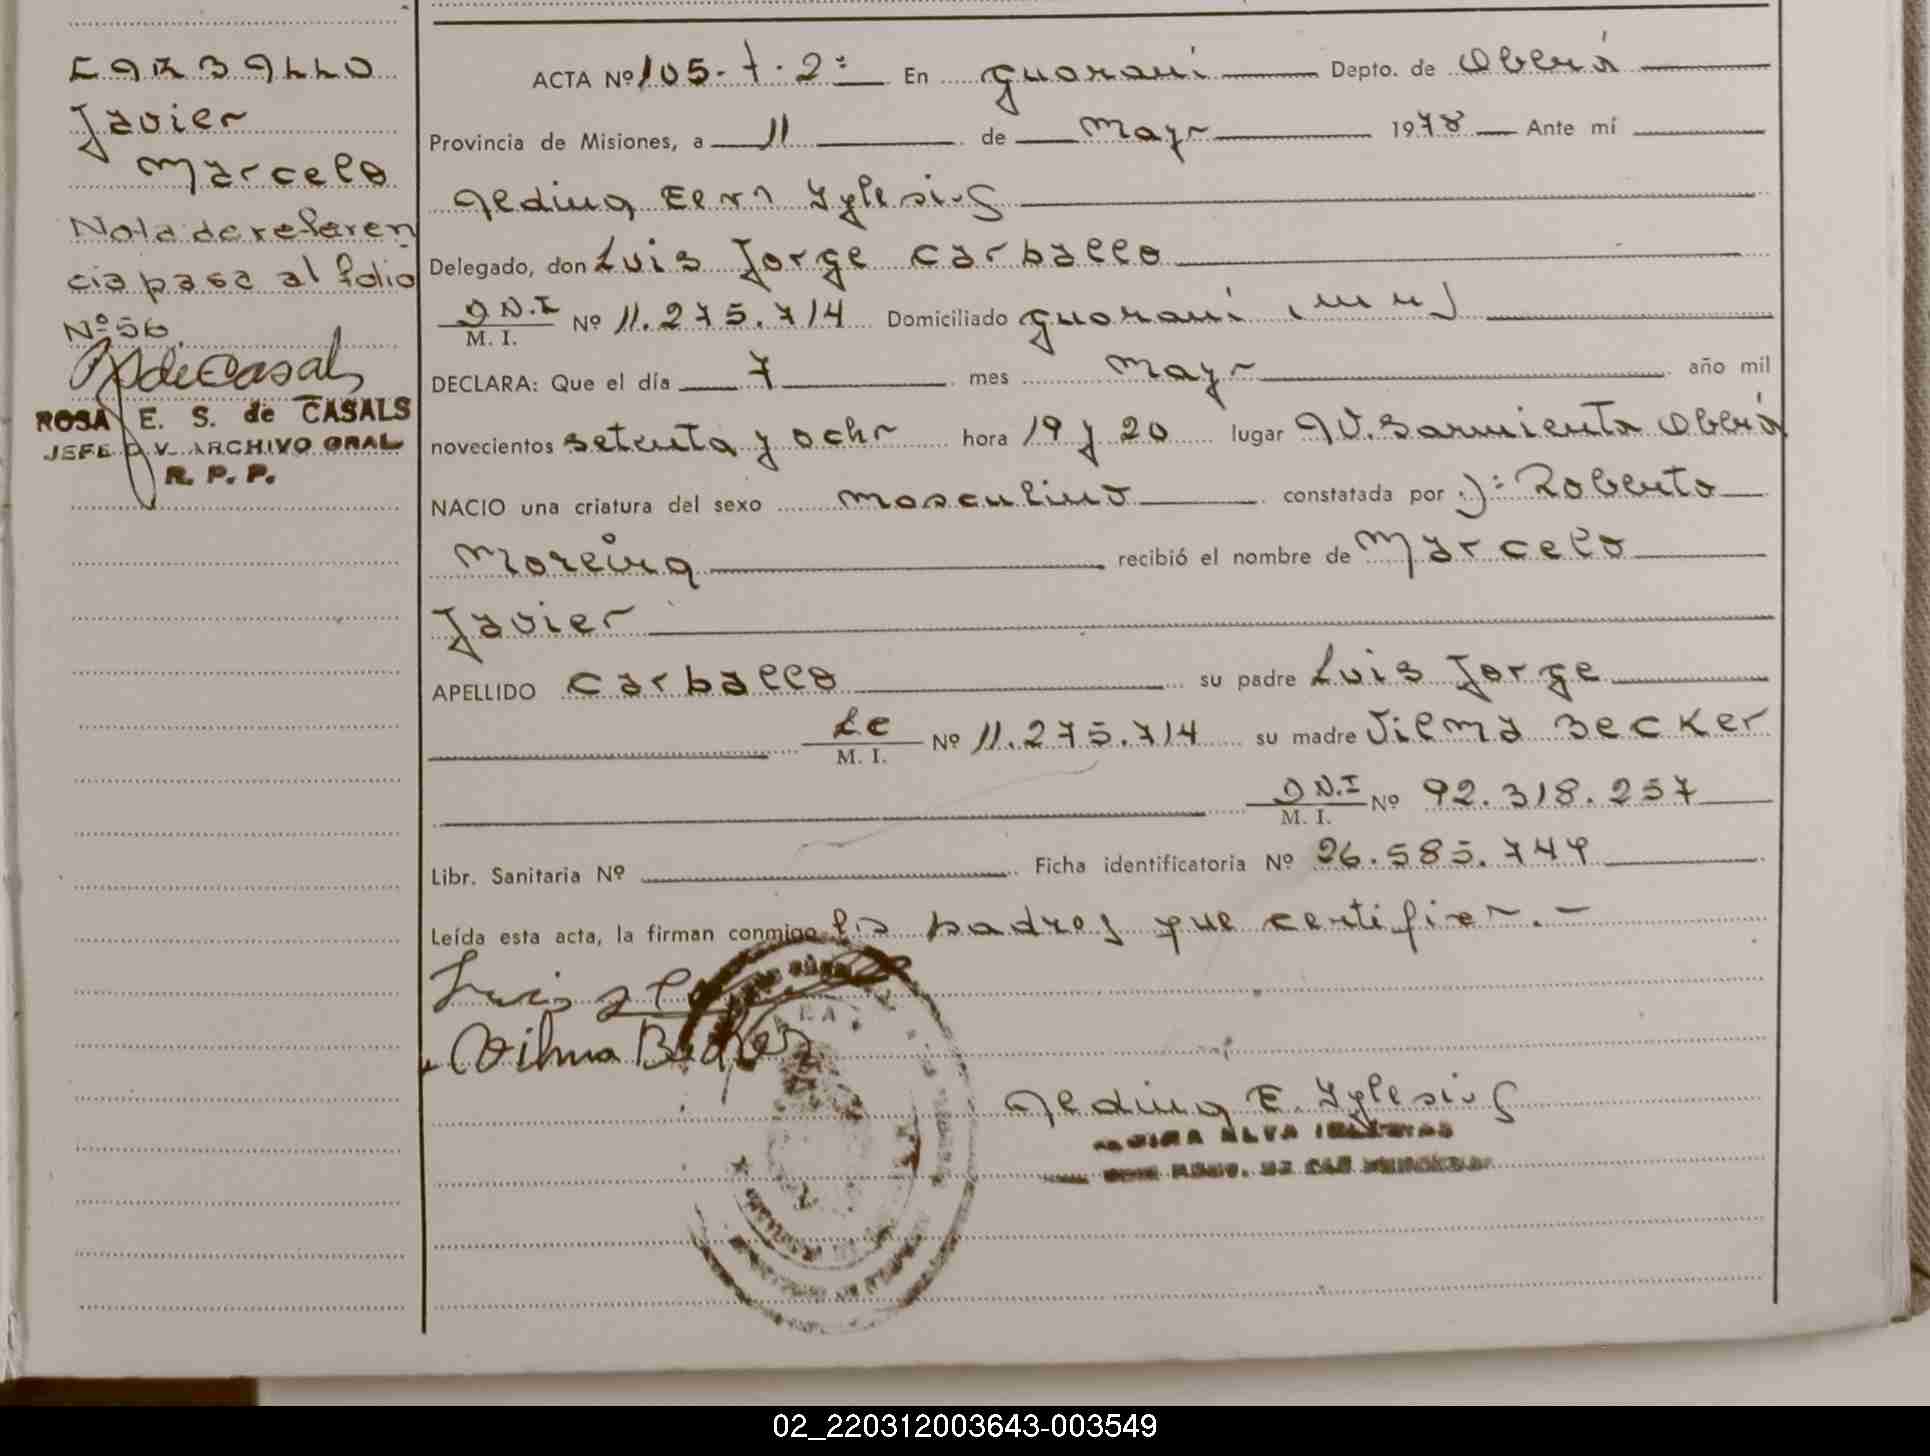 CARBALLO
Javier
Marcelo
Nota de referen
cia pasa al folio
Nº 56.
RSdeCasals
ROSA E. S. de CASALS
JEFE DIV. ARCHIVO GRAL
R. P. P.
ACTA Nº 105-T-2º En Guarani Depto. de Oberá
Provincia de Misiones, a 11 de Mayo 1978 Ante mí
Iglesias
Delegado, don Luis Jorge Carballo
D.N.I
M. I. Nº 11.275.714 Domiciliado Guarani (mnes)
DECLARA: Que el día 7 mes Mayo año mil
novecientos setenta y ocho hora 19 y 20 lugar AV. Sarmiento Oberá
NACIO una criatura del sexo masculino constatada por Dr: Roberto
Moreira recibió el nombre de Marcelo
Javier
APELLIDO Carballo su padre Luis Jorge
LE
M. I. Nº 11.275.714 su madre Vilma Becker
D N.I
M. I. Nº 92.318.257
Libr. Sanitaria Nº Ficha identificatoria Nº 26.585.744
Leída esta acta, la firman conmigo los padres que certifico.-
Luis
Vilma Becker
E. Iglesias
02_220312003643-003549